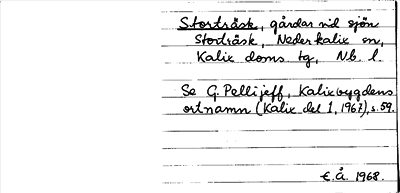 Storträsk, gårdar vid sjön
Storträsk, Nederkalix sn,
Kalix doms. tg, Nb. l.
Se G. Pellijeff, Kalixbygdens
ortnamn (Kalix del 1, 1967), s. 59.
€.å. 1968.